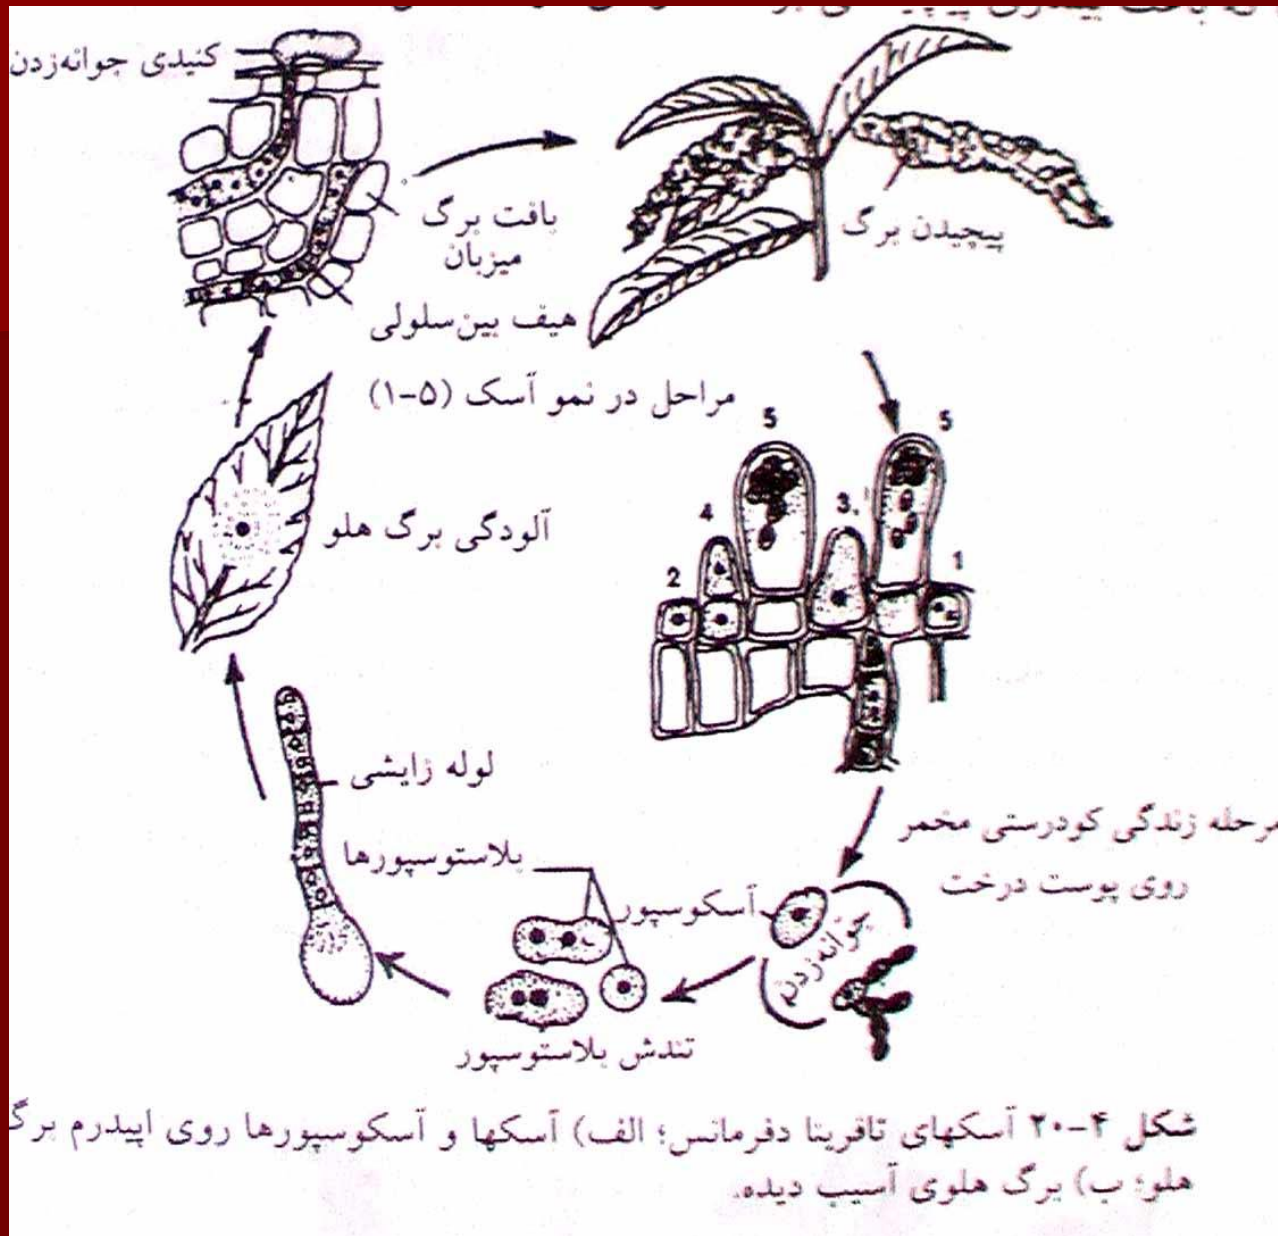 کنیدی جوانه‌زدن
بافت برگ
میزبان
پیچیدن برگ
هیف بین‌سلولی
مراحل در نمو آسک (۵-۱)
5
5
4
3
2
1
آلودگی برگ هلو
لوله زایشی
مرحله زندگی کودرستی مخمر
روی پوست درخت
بلاستوسپورها
آسکوسپور
جوانه‌زدن
تندش بلاستوسپور
شکل ۴-۲۰ آسکهای تافرینا دفرمانس؛ الف) آسکها و آسکوسپورها روی اپیدرم برگ
هلو؛ ب) برگ هلوی آسیب دیده.